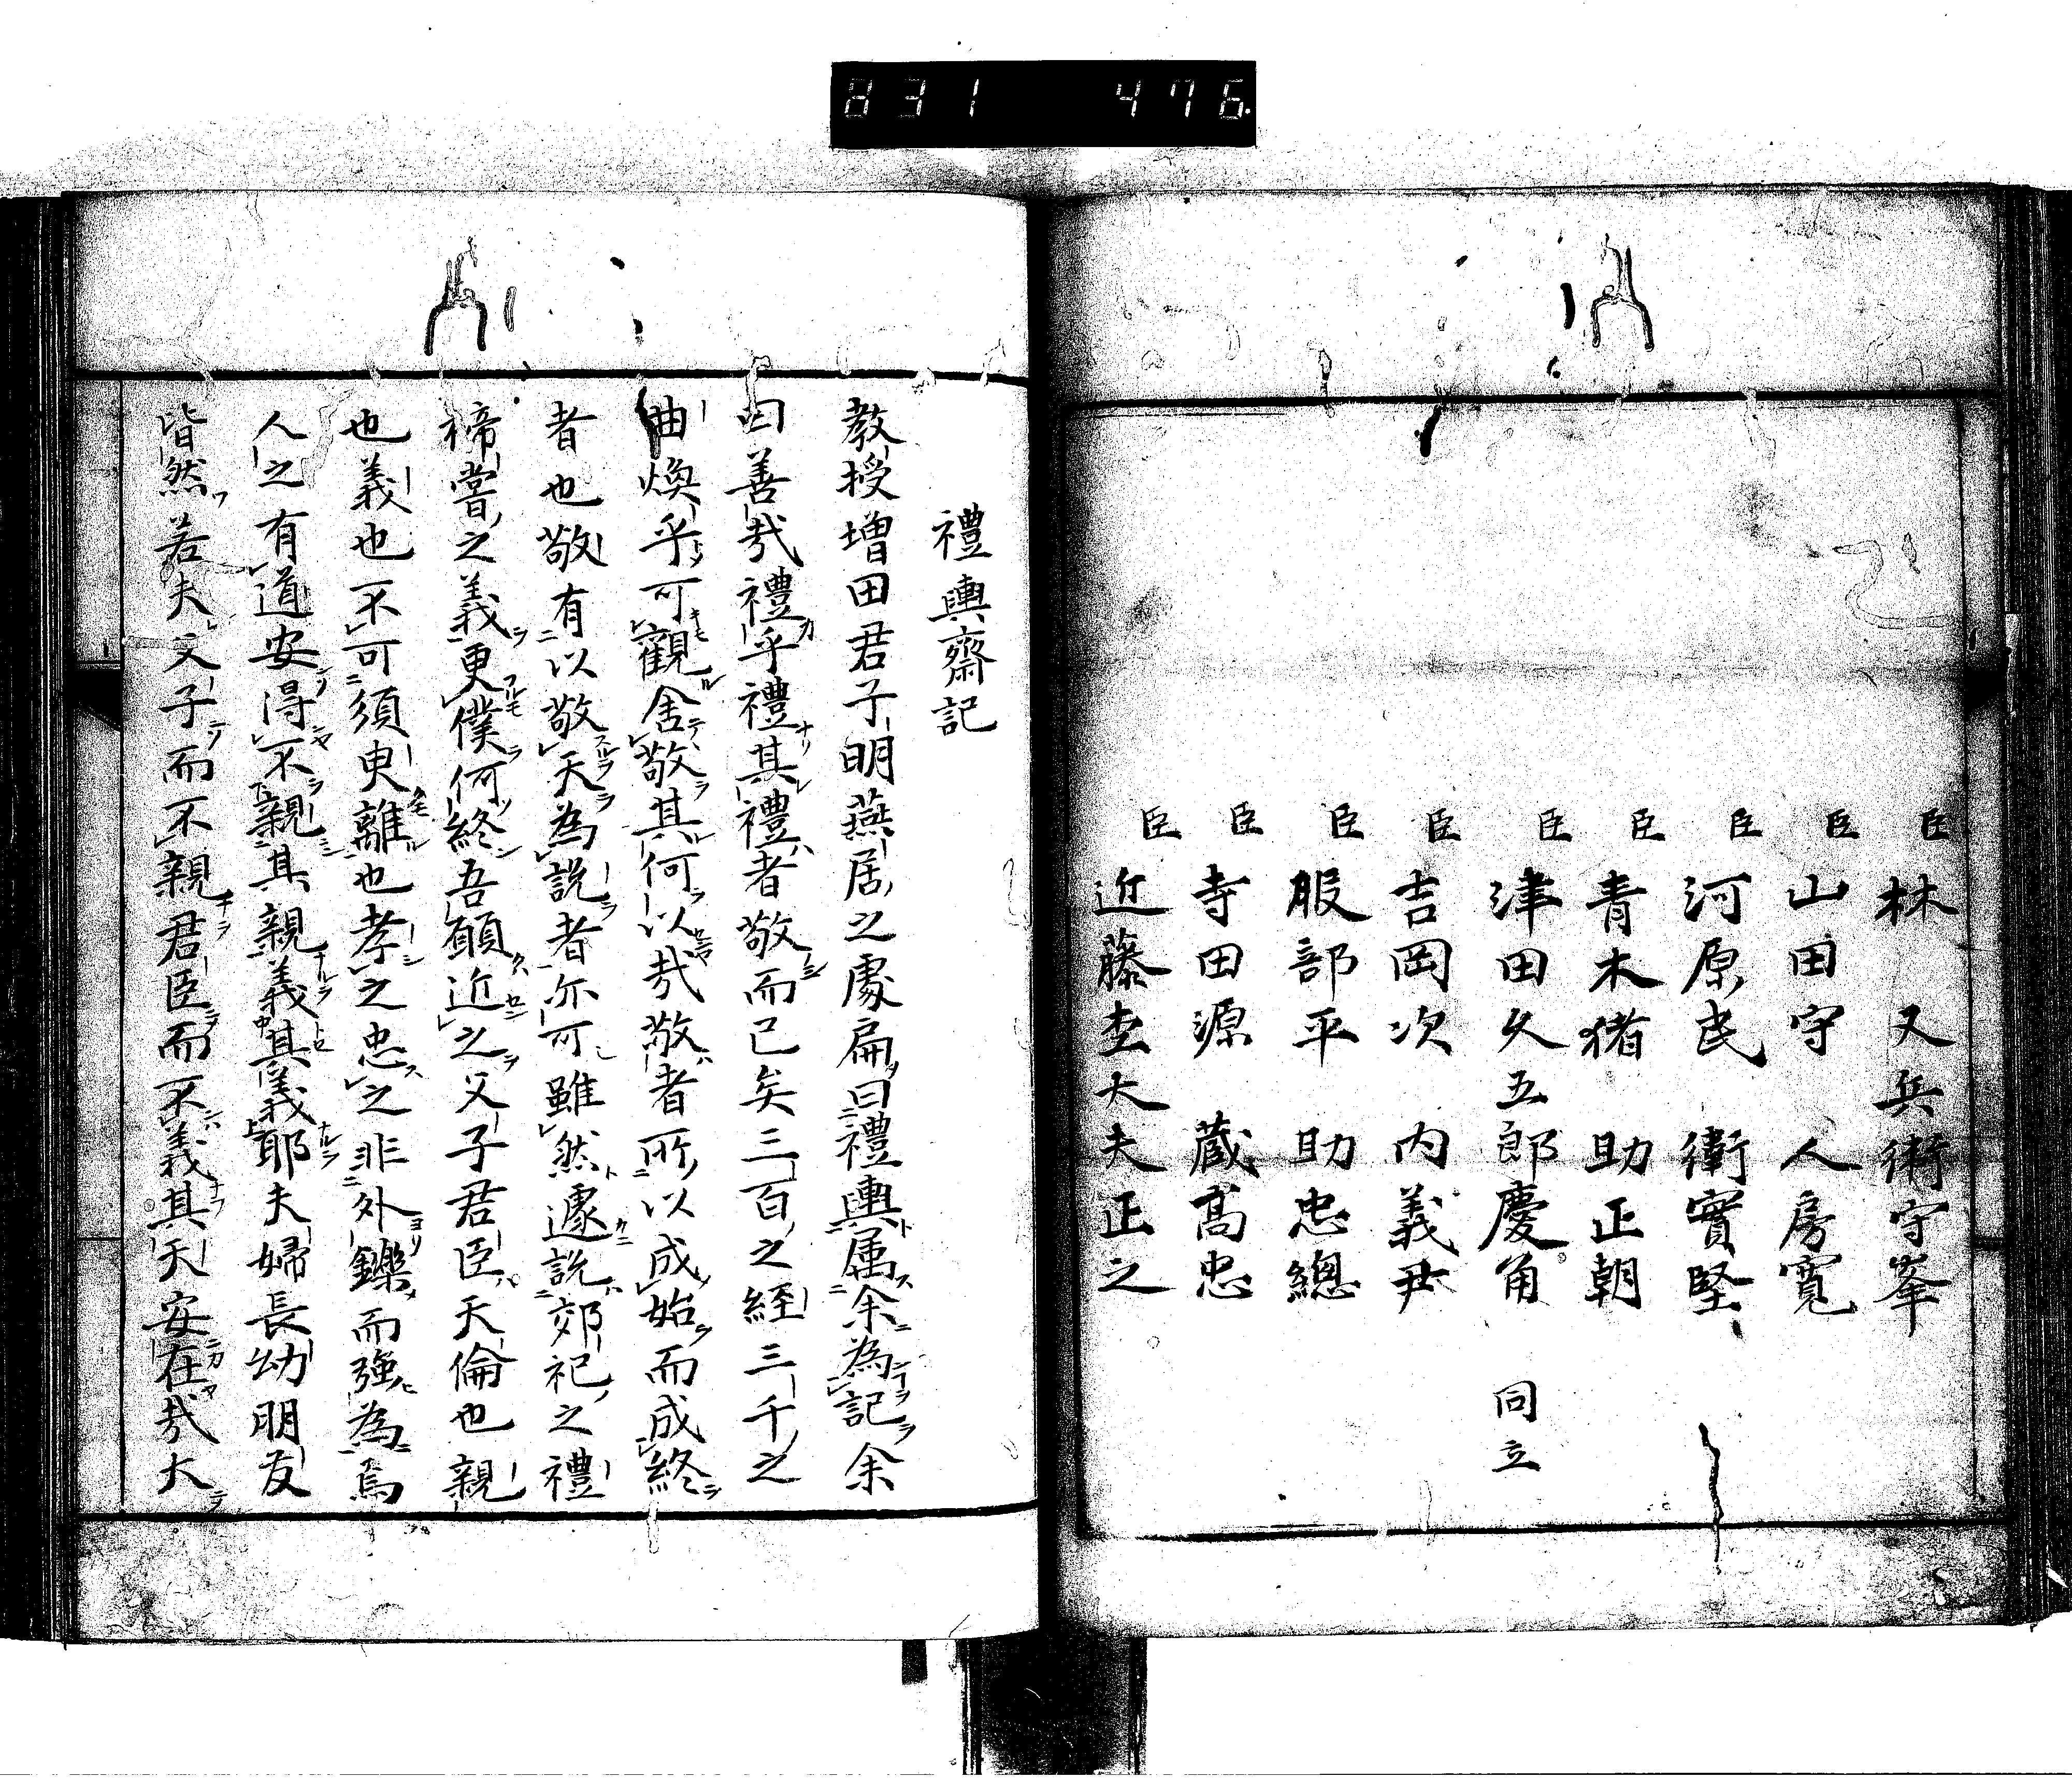 831 476.
臣 林 又兵衛守峯
臣 山田守人房寛
臣 河原民衛實堅
臣 青木猪助正朝
臣 津田久五郎慶角 同立
臣 吉岡次内義尹
臣 服部平助忠總
臣 寺田源蔵髙忠
臣 近藤杢大夫正之
禮輿齋記
教授増田君子明燕居之處扁曰禮輿属余為記余
曰善哉禮乎禮其禮者敬而已矣三百之経三千之
曲煥乎可觀舍敬其何以哉敬者所以成始而成終
者也敬有以敬天為説者亦可雖然遽説郊祀之禮
禘嘗之義更僕何終吾願近之父子君臣天倫也親
也義也不可須臾離也孝之忠之非外鑠而強為焉
人之有道安得不親其親義其義耶夫婦長幼朋友
皆然若夫父子而不親君臣而不義其天安在哉大